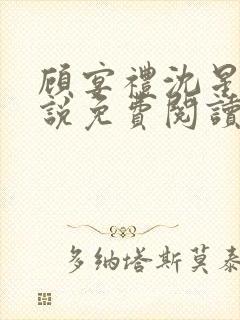 顧宴禮沈星
說免費閱讀
多納塔斯莫泰